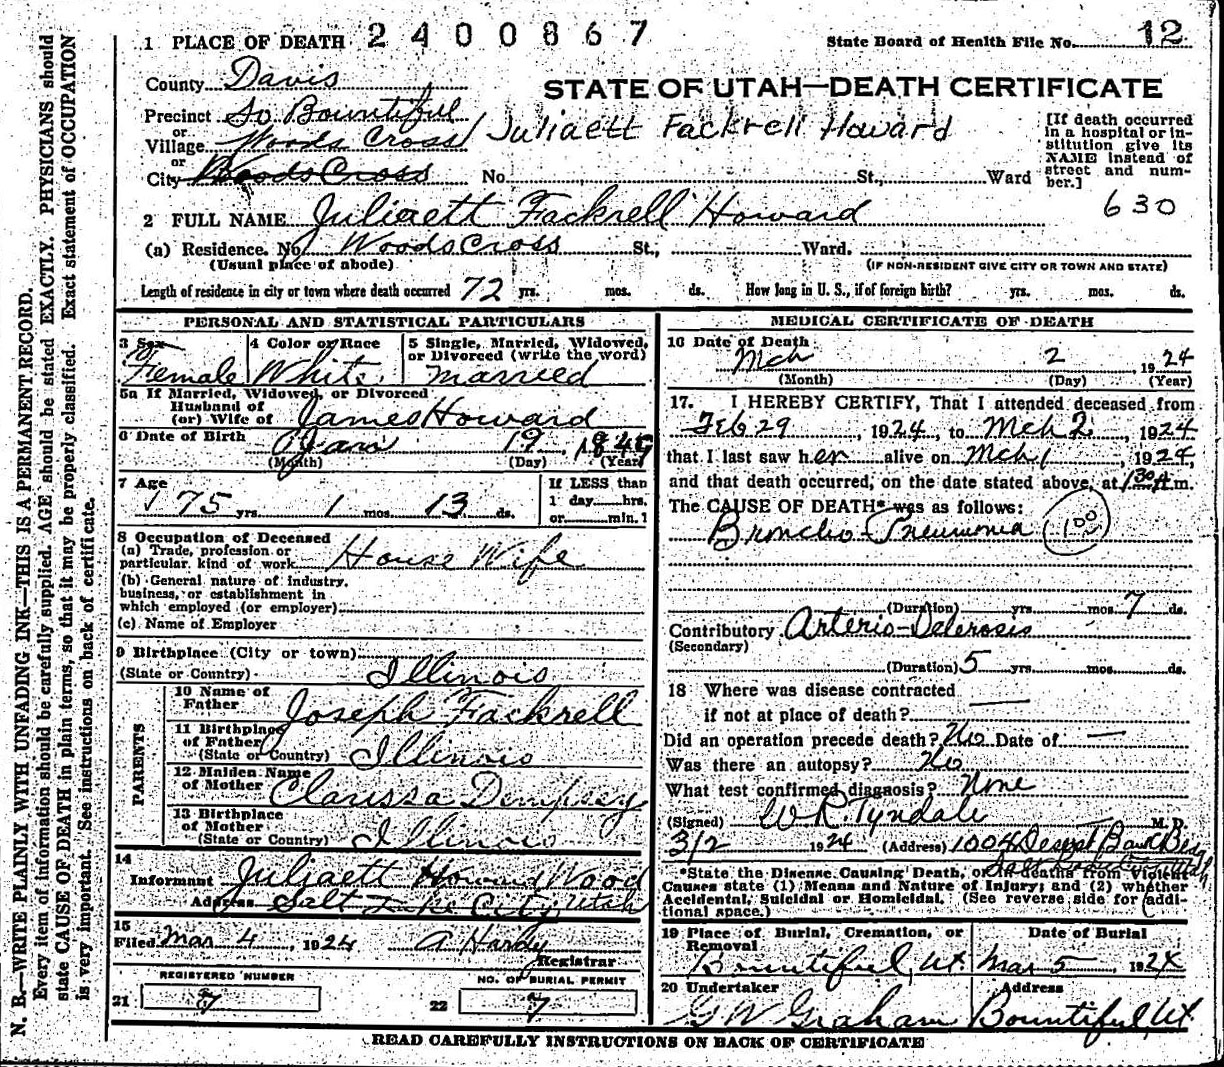 1 PLACE OF DEATH 2400867
State Board of Health File No. 12
County Davis
STATE OF UTAH—DEATH CERTIFICATE
Precinct So Bountiful
or
Village Woods Cross
Juliaett Fackrell Howard
or
City Woods Cross No. St., Ward
[If death occurred
in a hospital or in-
stitution give its
NAME instead of
street and num-
ber.]
630
2 FULL NAME Juliaett Fackrell Howard
(a) Residence. No. Woods Cross St., Ward.
(Usual place of abode) (IF NON-RESIDENT GIVE CITY OR TOWN AND STATE)
Length of residence in city or town where death occurred 72 yrs. mos. ds. How long in U. S., if of foreign birth? yrs. mos. ds.
PERSONAL AND STATISTICAL PARTICULARS
3 Sex
Female
4 Color or Race
White
5 Single, Married, Widowed,
or Divorced (write the word)
married
5a If Married, Widowed, or Divorced
Husband of
(or) Wife of James Howard
6 Date of Birth Jan 19, 1849
(Month) (Day) (Year)
7 Age
75 yrs. 1 mos. 13 ds.
If LESS than
1 day hrs.
or min.
8 Occupation of Deceased
(a) Trade, profession or
particular kind of work House Wife
(b) General nature of industry,
business, or establishment in
which employed (or employer)
(c) Name of Employer
9 Birthplace (City or town)
(State or Country) Illinois
PARENTS
10 Name of
Father Joseph Fackrell
11 Birthplace
of Father
(State or Country) Illinois
12 Maiden Name
of Mother Clarissa Dempsey
13 Birthplace
of Mother
(State or Country) Illinois
14
Informant Juliaett Howard Wood
Address Salt Lake City, Utah
15
Filed Mar 4, 1924 A Hardy
Registrar
REGISTERED NUMBER
21 7
NO. OF BURIAL PERMIT
22 7
MEDICAL CERTIFICATE OF DEATH
16 Date of Death
Mch 2 1924
(Month) (Day) (Year)
17. I HEREBY CERTIFY, That I attended deceased from
Feb 29, 1924, to Mch 2, 1924
that I last saw her alive on Mch 1, 1924,
and that death occurred, on the date stated above, at 1 30 A.m.
The CAUSE OF DEATH* was as follows:
Broncho-Pneumonia 100
(Duration) yrs. mos. 7 ds.
Contributory Arterio-Sclerosis
(Secondary)
(Duration) 5 yrs. mos. ds.
18 Where was disease contracted
if not at place of death?
Did an operation precede death? No Date of —
Was there an autopsy? No
What test confirmed diagnosis? None
(Signed) W R. Tyndale M.D.
3/2 1924 (Address) 1004 Deseret Bank Bldg
*State the Disease Causing Death, or in deaths from Violent
Causes state (1) Means and Nature of Injury; and (2) whether
Accidental, Suicidal or Homicidal. (See reverse side for addi-
tional space.)
19 Place of Burial, Cremation, or
Removal
Bountiful, Ut.
Date of Burial
Mar 5, 1924
20 Undertaker
G W Graham
Address
Bountiful, Ut
READ CAREFULLY INSTRUCTIONS ON BACK OF CERTIFICATE
N. B.—WRITE PLAINLY WITH UNFADING INK—THIS IS A PERMANENT RECORD.
Every item of information should be carefully supplied. AGE should be stated EXACTLY. PHYSICIANS should
state CAUSE OF DEATH in plain terms, so that it may be properly classified. Exact statement of OCCUPATION
is very important. See instructions on back of certificate.